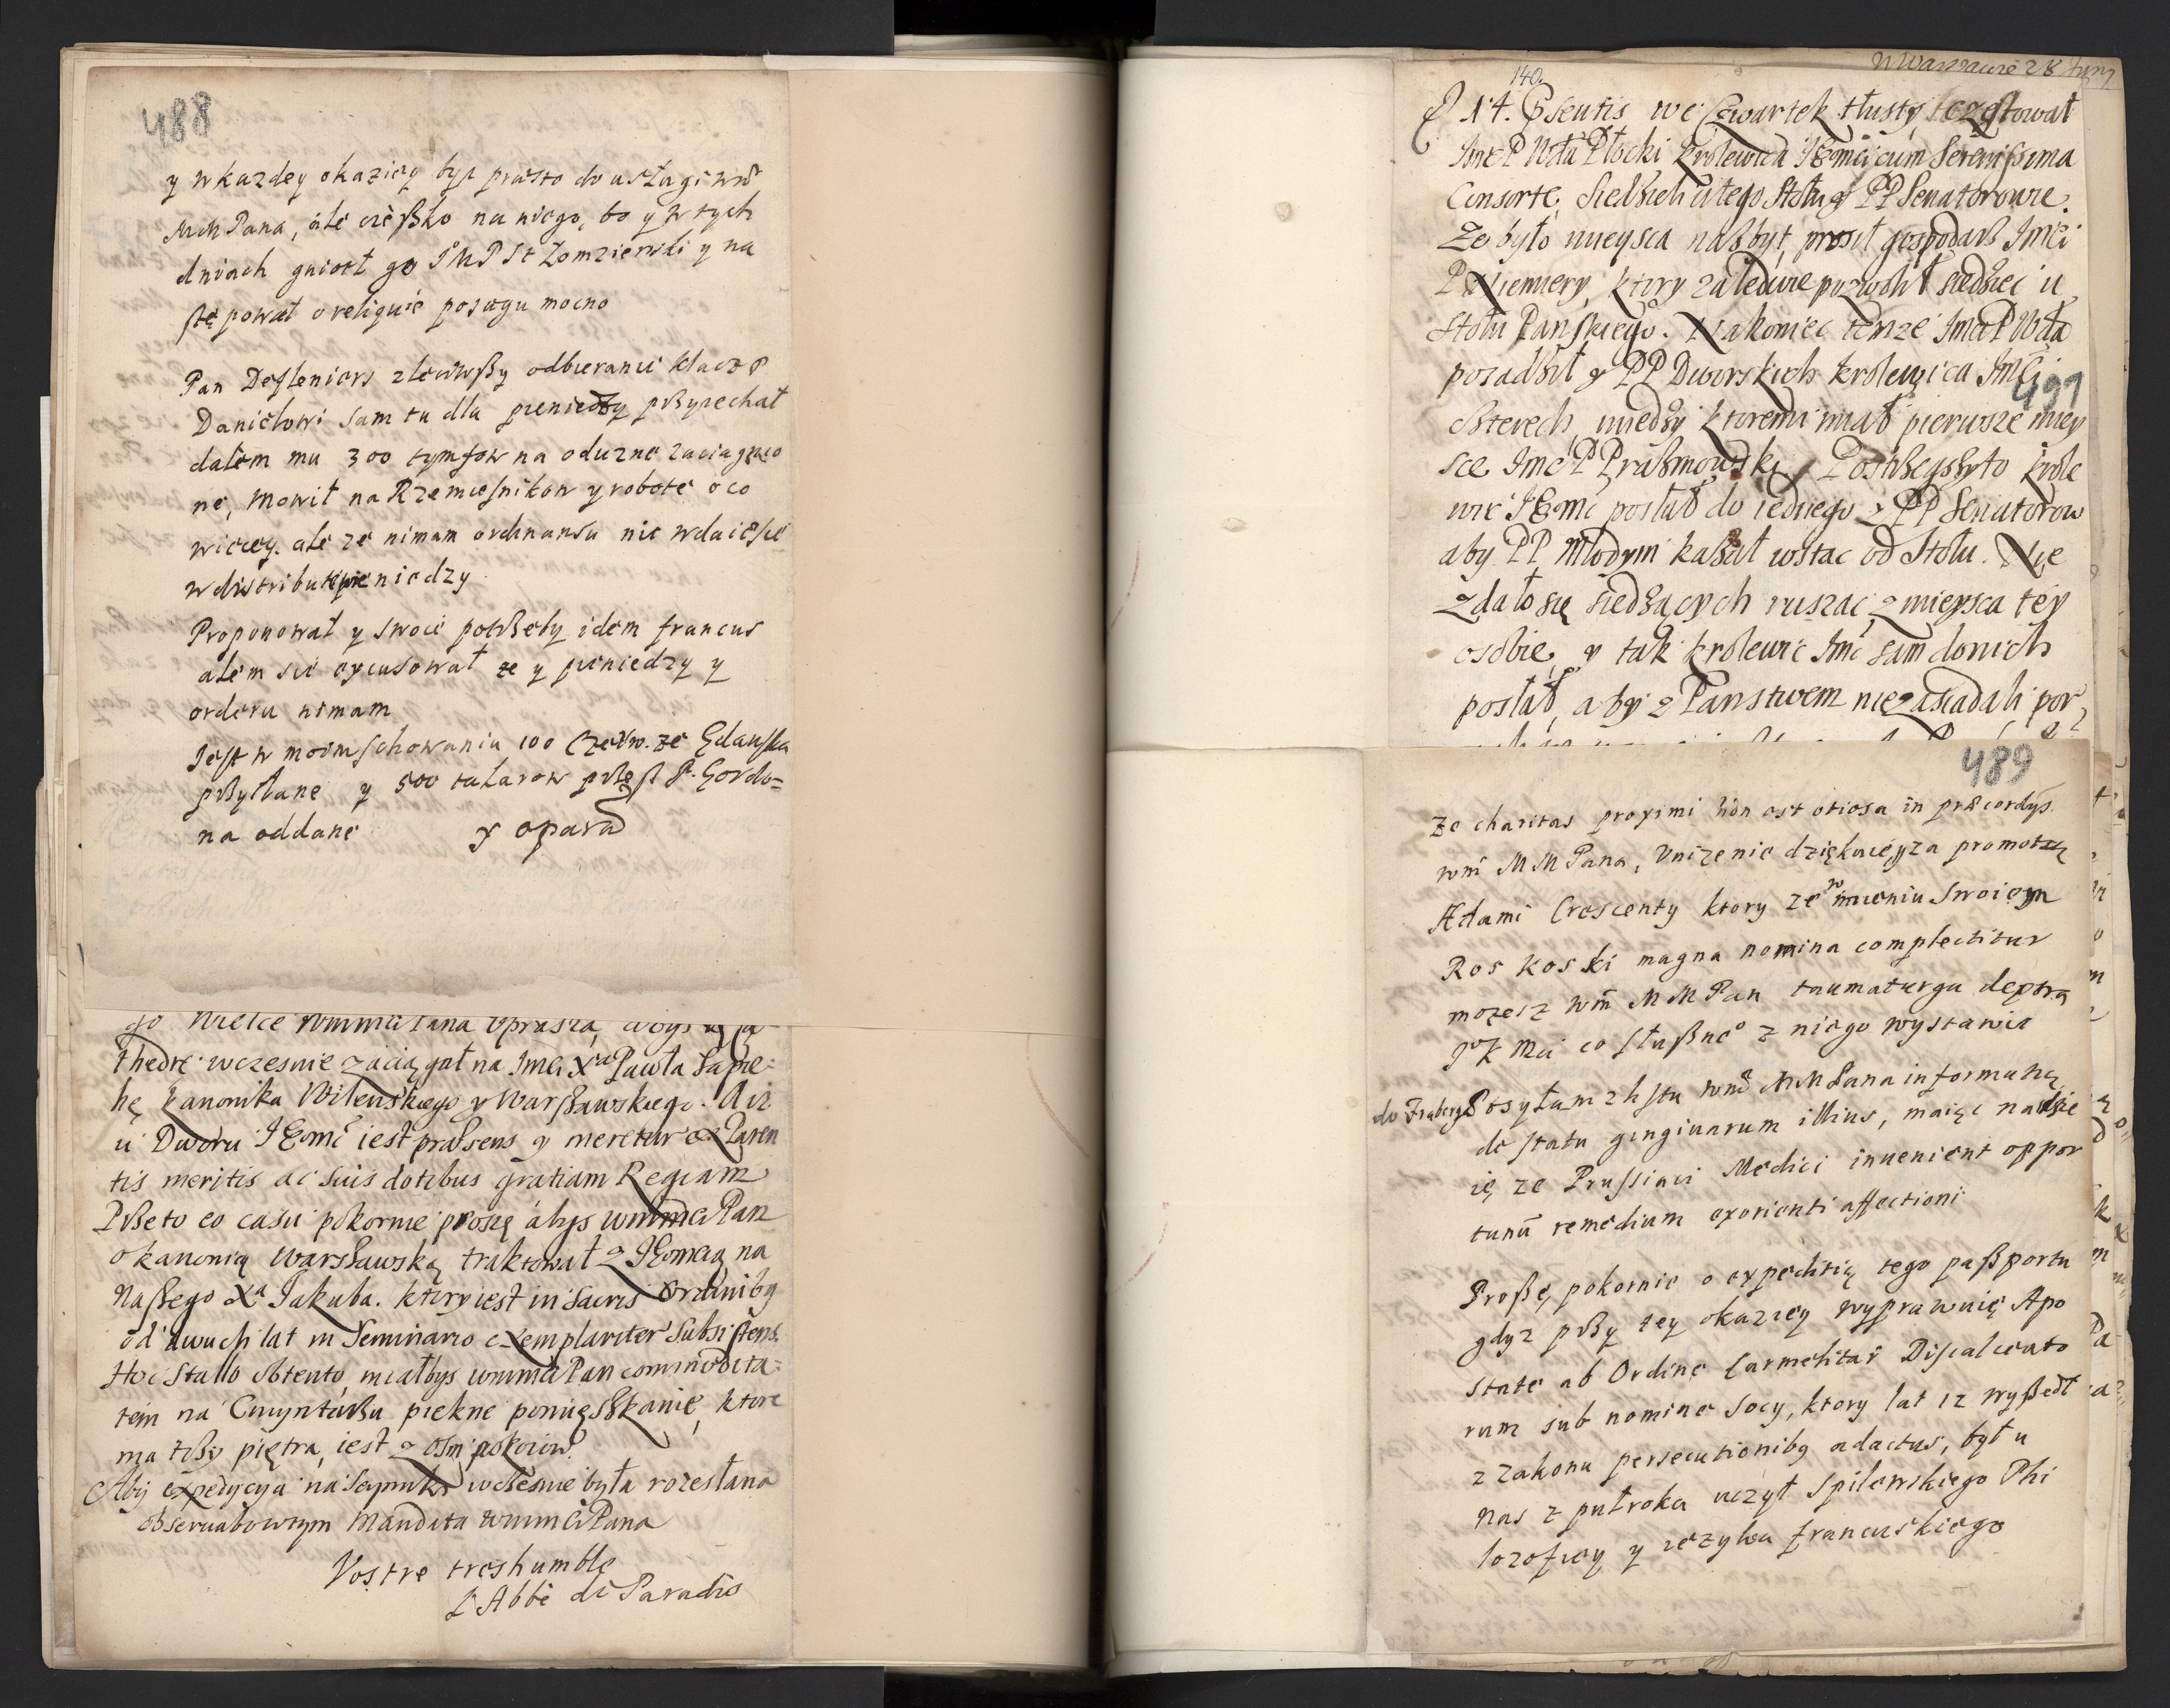 488
y w kazdey okaziey byc prosto do usługi wm̃
MM Pana, ale cięßko na niego, bo y w tych
dniach gniott go IMP St Zomzierski y na
stę powat o reliquie posagu mocno
Pan Desteniers zleciwßy odbieranie klacz P
Daniełowi sam tu dla pieniedzy pßyiechał
dałem mu 300 tymfow na oduzne zaciągnio
ne, mowił na Rzemiesnikow y robote o co
wiecey. ale ze nimam ordinansu nie wdaie się
w distributę pieniedzy.
Proponował y swoie potßeby idem francus
alem sie excusował ze y pieniedzy y
orderu nimam
Jest w moim schowaniu 100 Czerw. ze Gdanska
pßysłane y 500 talarow pßeß P. Gordo=
na oddane
go wielce wmmci Pana upraszą, abys
thedrę wczesnie zaciągał na Imci Xa Pawła Sapie=
hę Kanonika Wilenskiego y Warßawskiego. A iz
u Dworu JKmci iest praesens y meretur ex Paren
tis meritis ac suis dotibus gratiam Regiam
Pßeto eo casu pokornie proszę abys wmmci Pan
o kanonią Warszawską traktował z JKomcią na
naßego Xa Jakuba. ktory iest in sacris Ordinibq
od dwuch lat in Seminario exemplariter subsistens.
Hoc stallo obtento, miałbys wmmci Pan commodita=
tem na Cmyntarßu piekne pomięszkanie, ktore
ma tßy piętra, iest z osm pokoiow.
Aby expedycya na Seymiki wczesnie była rozesłana
obseruabo w tym mandata wmmci Pana
Vostre tres humble
L'Abbé de Paradis
w Warszawie 28
140
D 14. Psentis we Czwartek tłusty częstował
Imc P Wda Płocki Krolewica JKmci cum Serenissima
Consorte, Siedzieli u tego Stołu y PP Senatorowie.
Ze było mieysca nazbyt, prosił gospodarz Imci
P Niemiery, ktory zaledwie pozwolił siedziec u
Stołu Panskiego. Nakoniec tenze Imci P Wda
posadził y PP Dworskich Krolewica Imci
491
czterech, miedzy ktoremi miał pierwsze miey
sce Imc P Prazmowski, Postßegßyto Krole
wic JKmc posłał do iednego z PP Senatorow
aby PP Młodym kazał wstac od Stołu. Nie
zdało się siedzących ruszac z mieysca tey
osobie, y tak Krolewic Imc sam do nich
posłał, aby z Panstwem nie zasiadali por
489
Ze charitas proximi non est otiosa in præcordys.
wm̃ MM Pana, Vnizenie dziękuię za promotią
Adami Crescenty ktory ze w imieniu swoiem
Ros kos ki magna nomina complectitur
mozesz wm̃ MM Pan taumaturga dextra
JoK Mci co słußne° z niego wystawic
Posyłam z listu wm̃ MM Pana informatią
de statu gingiuarum illius, maiąc nadzie
ię ze Prussiaci Medici inuenient oppor
tunũ remedium exorienti affectioni
Proßę pokornie o expeditią tego paßportu
gdyz pßy tey okaziey wyprawuię Apo
state ab Ordine Carmelitar̃ Discalceato
rum sub nomine Socy, ktory lat 12 wyßedł
z zakonu persecutionibq adactus, był u
nas z putroka uczył Spilewskiego Phi
lozofiey y iezyka francuskiego